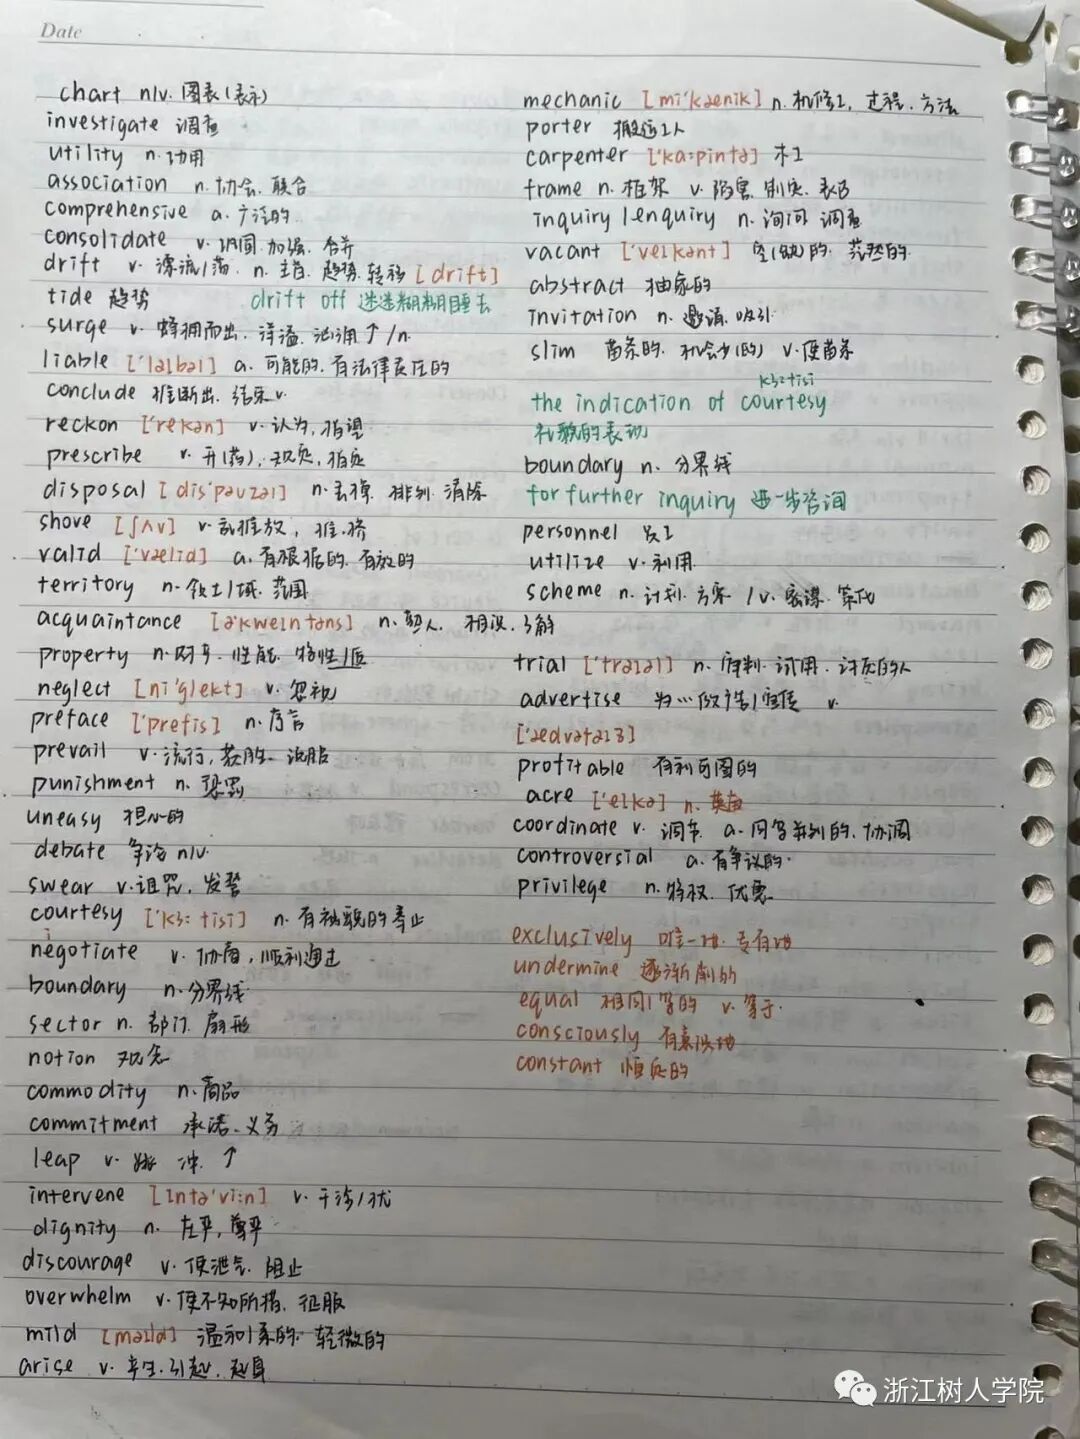 Date
chart n/v. 图表(表示)
investigate 调查
utility n. 功用
association n. 协会. 联合
comprehensive a. 广泛的
consolidate v. 巩固. 加强. 合并
drift v. 漂流/荡. n. 主旨. 趋势. 转移 [drift]
tide 趋势 drift off 迷迷糊糊睡去
surge v. 蜂拥而出. 洋溢. 汹涌↑/n.
liable ['laɪbəl] a. 可能的. 有法律责任的
conclude 推断出. 结束v.
reckon ['rekən] v. 认为, 指望
prescribe v. 开(药), 规定, 指定
disposal [dis'pəuzəl] n. 丢掉. 排列. 清除
shove [ʃʌv] v. 乱推放, 推. 挤
valid ['vælid] a. 有根据的. 有效的
territory n. 领土/域. 范围
acquaintance [ə'kweɪntəns] n. 熟人. 相识. 了解
property n. 财产. 性能. 特性/质
neglect [ni'glekt] v. 忽视
preface ['prefis] n. 序言
prevail v. 流行, 获胜. 说服
punishment n. 惩罚
uneasy 担心的
debate 争论 n/v.
swear v. 诅咒, 发誓
courtesy ['kɜ: tisi] n. 有礼貌的举止
negotiate v. 协商, 顺利通过
boundary n. 分界线
sector n. 部门. 扇形
notion 观念
commodity n. 商品
commitment 承诺. 义务
leap v. 跳 冲. ↑
intervene [ɪntə'vi:n] v. 干涉/扰
dignity n. 庄严, 尊严
discourage v. 使泄气. 阻止
overwhelm v. 使不知所措. 征服
mild [maɪld] 温和/柔的. 轻微的
arise v. 产生. 引起. 起身
mechanic [mi'kænik] n. 机修工, 过程. 方法
porter 搬运工人
carpenter ['ka:pintə] 木工
frame n. 框架 v. 陷害. 制定. 表达
inquiry / enquiry n. 询问 调查
vacant ['veɪkənt] 空(缺)的. 茫然的.
abstract 抽象的
invitation n. 邀请. 吸引
slim 苗条的. 机会少(的) v. 使苗条
kɜ:tisi
the indication of courtesy
礼貌的表现
boundary n. 分界线
for further inquiry 进一步咨询
personnel 员工
utilize v. 利用
scheme n. 计划. 方案 / v. 密谋. 策代
trial ['traɪəl] n. 审判. 试用. 讨厌的人
advertise 为…做广告/宣传 v.
['ædvətaɪz]
profitable 有利可图的
acre ['eɪkə] n. 英亩
coordinate v. 调节 a. 同等并列的. 协调
controversial a. 有争议的.
privilege n. 特权. 优惠
exclusively 唯一地. 专有地
undermine 逐渐削弱
equal 相同/等的 v. 等于.
consciously 有意识地
constant 恒定的
浙江树人学院